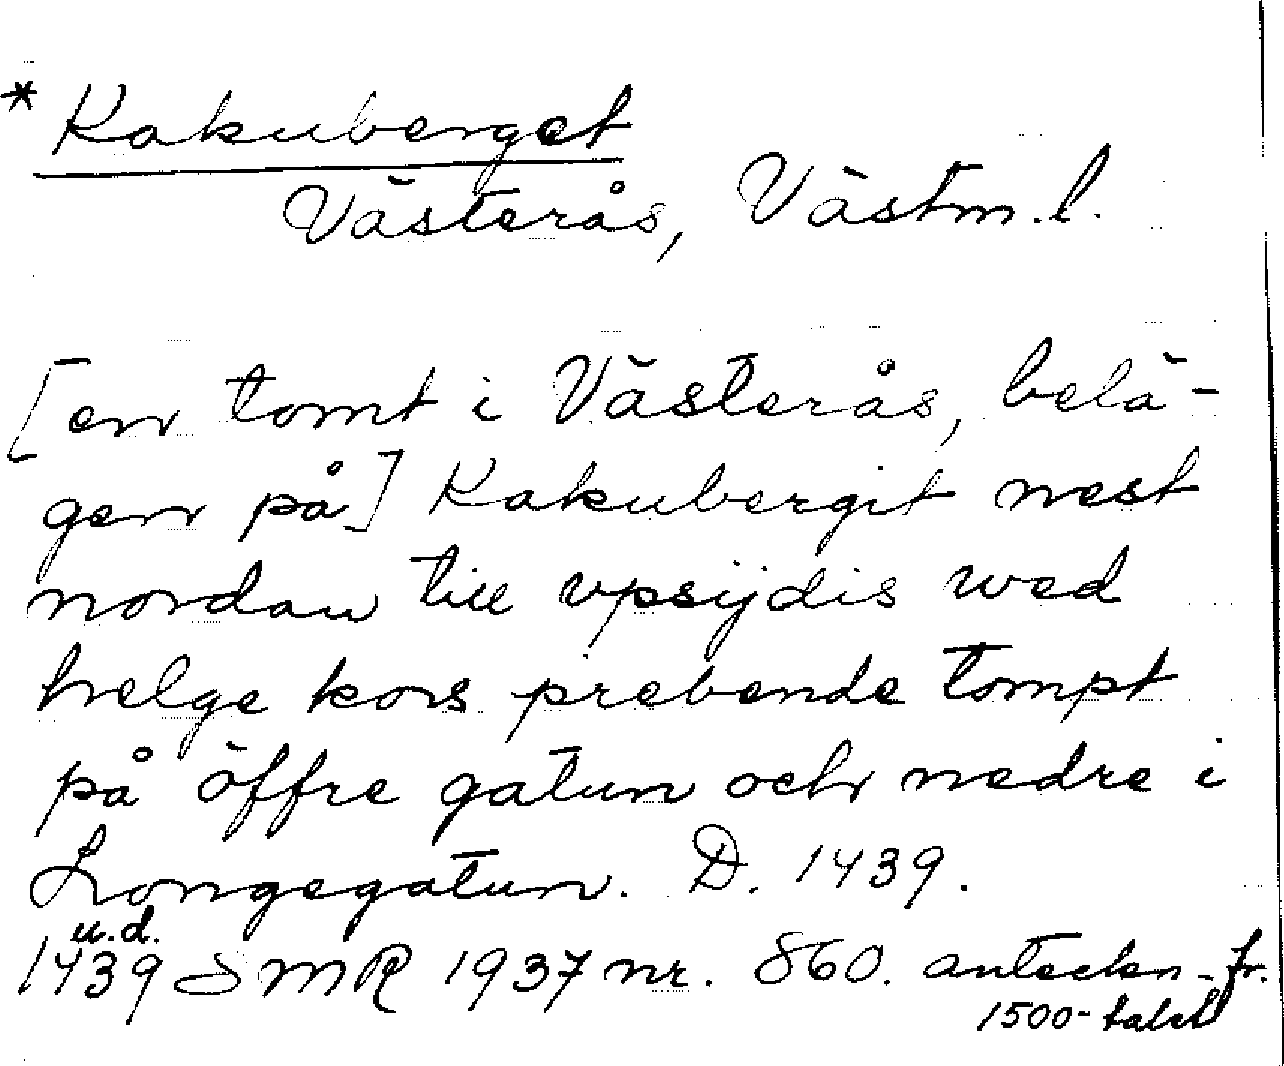 * Kakuberget
Västerås, Västm.l.
[en tomt i Västerås, belä-
gen på] Kakubergit nest
nordan till vpsijdis wed
helge kors prebende tompt
på öffre gatun och nedre i
Longegatun. D. 1439.
u.d.
1439 SMR 1937 nr. 860. anteckn. fr.
1500-talet